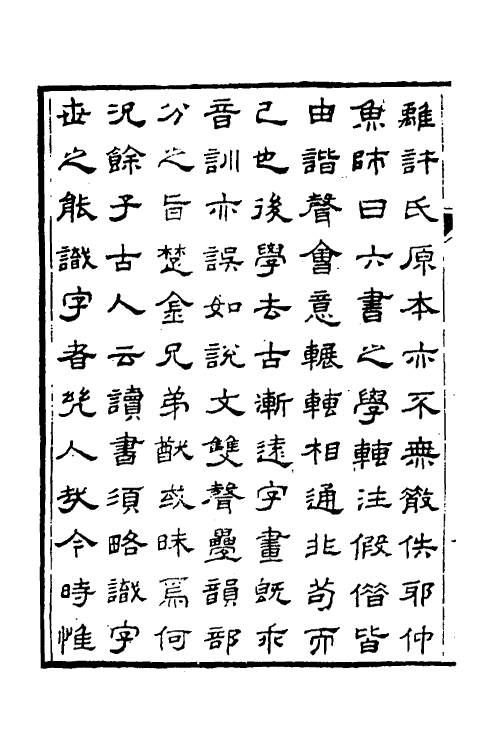 雖許氏原本亦不無散佚耶仲
魚師曰六書之學轉注假借皆
由諧聲會意輾轉相通非苟而
已也後學去古漸遠字畫既乖
音訓亦誤如說文雙聲疊韻部
分之旨楚金兄弟猷或昧焉何
況餘子古人云讀書須略識字
世之能識字者幾人哉今時惟